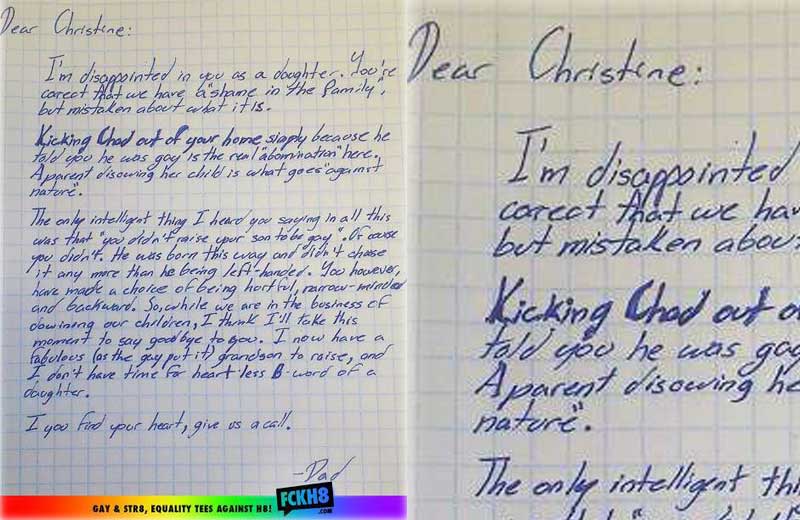 Dear Christine:
I'm disappointed in you as a daughter. You're
corect that we have a "shame in the family",
but mistaken about what it is.
Kicking Chad out of your home simply because he
told you he was gay is the real "abomination" here.
A parent disowing her child is what goes "against
nature".
The only intelligent thing I heard you saying in all this
was that "you didn't raise your son to be gay". Of couse
you didn't. He was born this way and didn't chose
it any more than he being left-handed. You however,
have made a choice of being hurtful, narrow-minded
and backward. So, while we are in the business of
disowning our children, I think I'll take this
moment to say goodbye to you. I now have a
fabulous (as the gay put it) grandson to raise, and
I don't have time for heart-less B-word of a
daughter.
I you find your heart, give us a call.
-Dad
GAY & STR8, EQUALITY TEES AGAINST H8!
FCKH8
.COM
Dear Christine:
I'm disappointed
corect that we hav
but mistaken abou
Kicking Chad out o
told you he was gay
A parent disowing he
nature".
The only intelligent thi